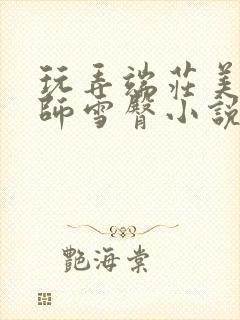 玩弄端莊美
師雪臀小說
艷海棠